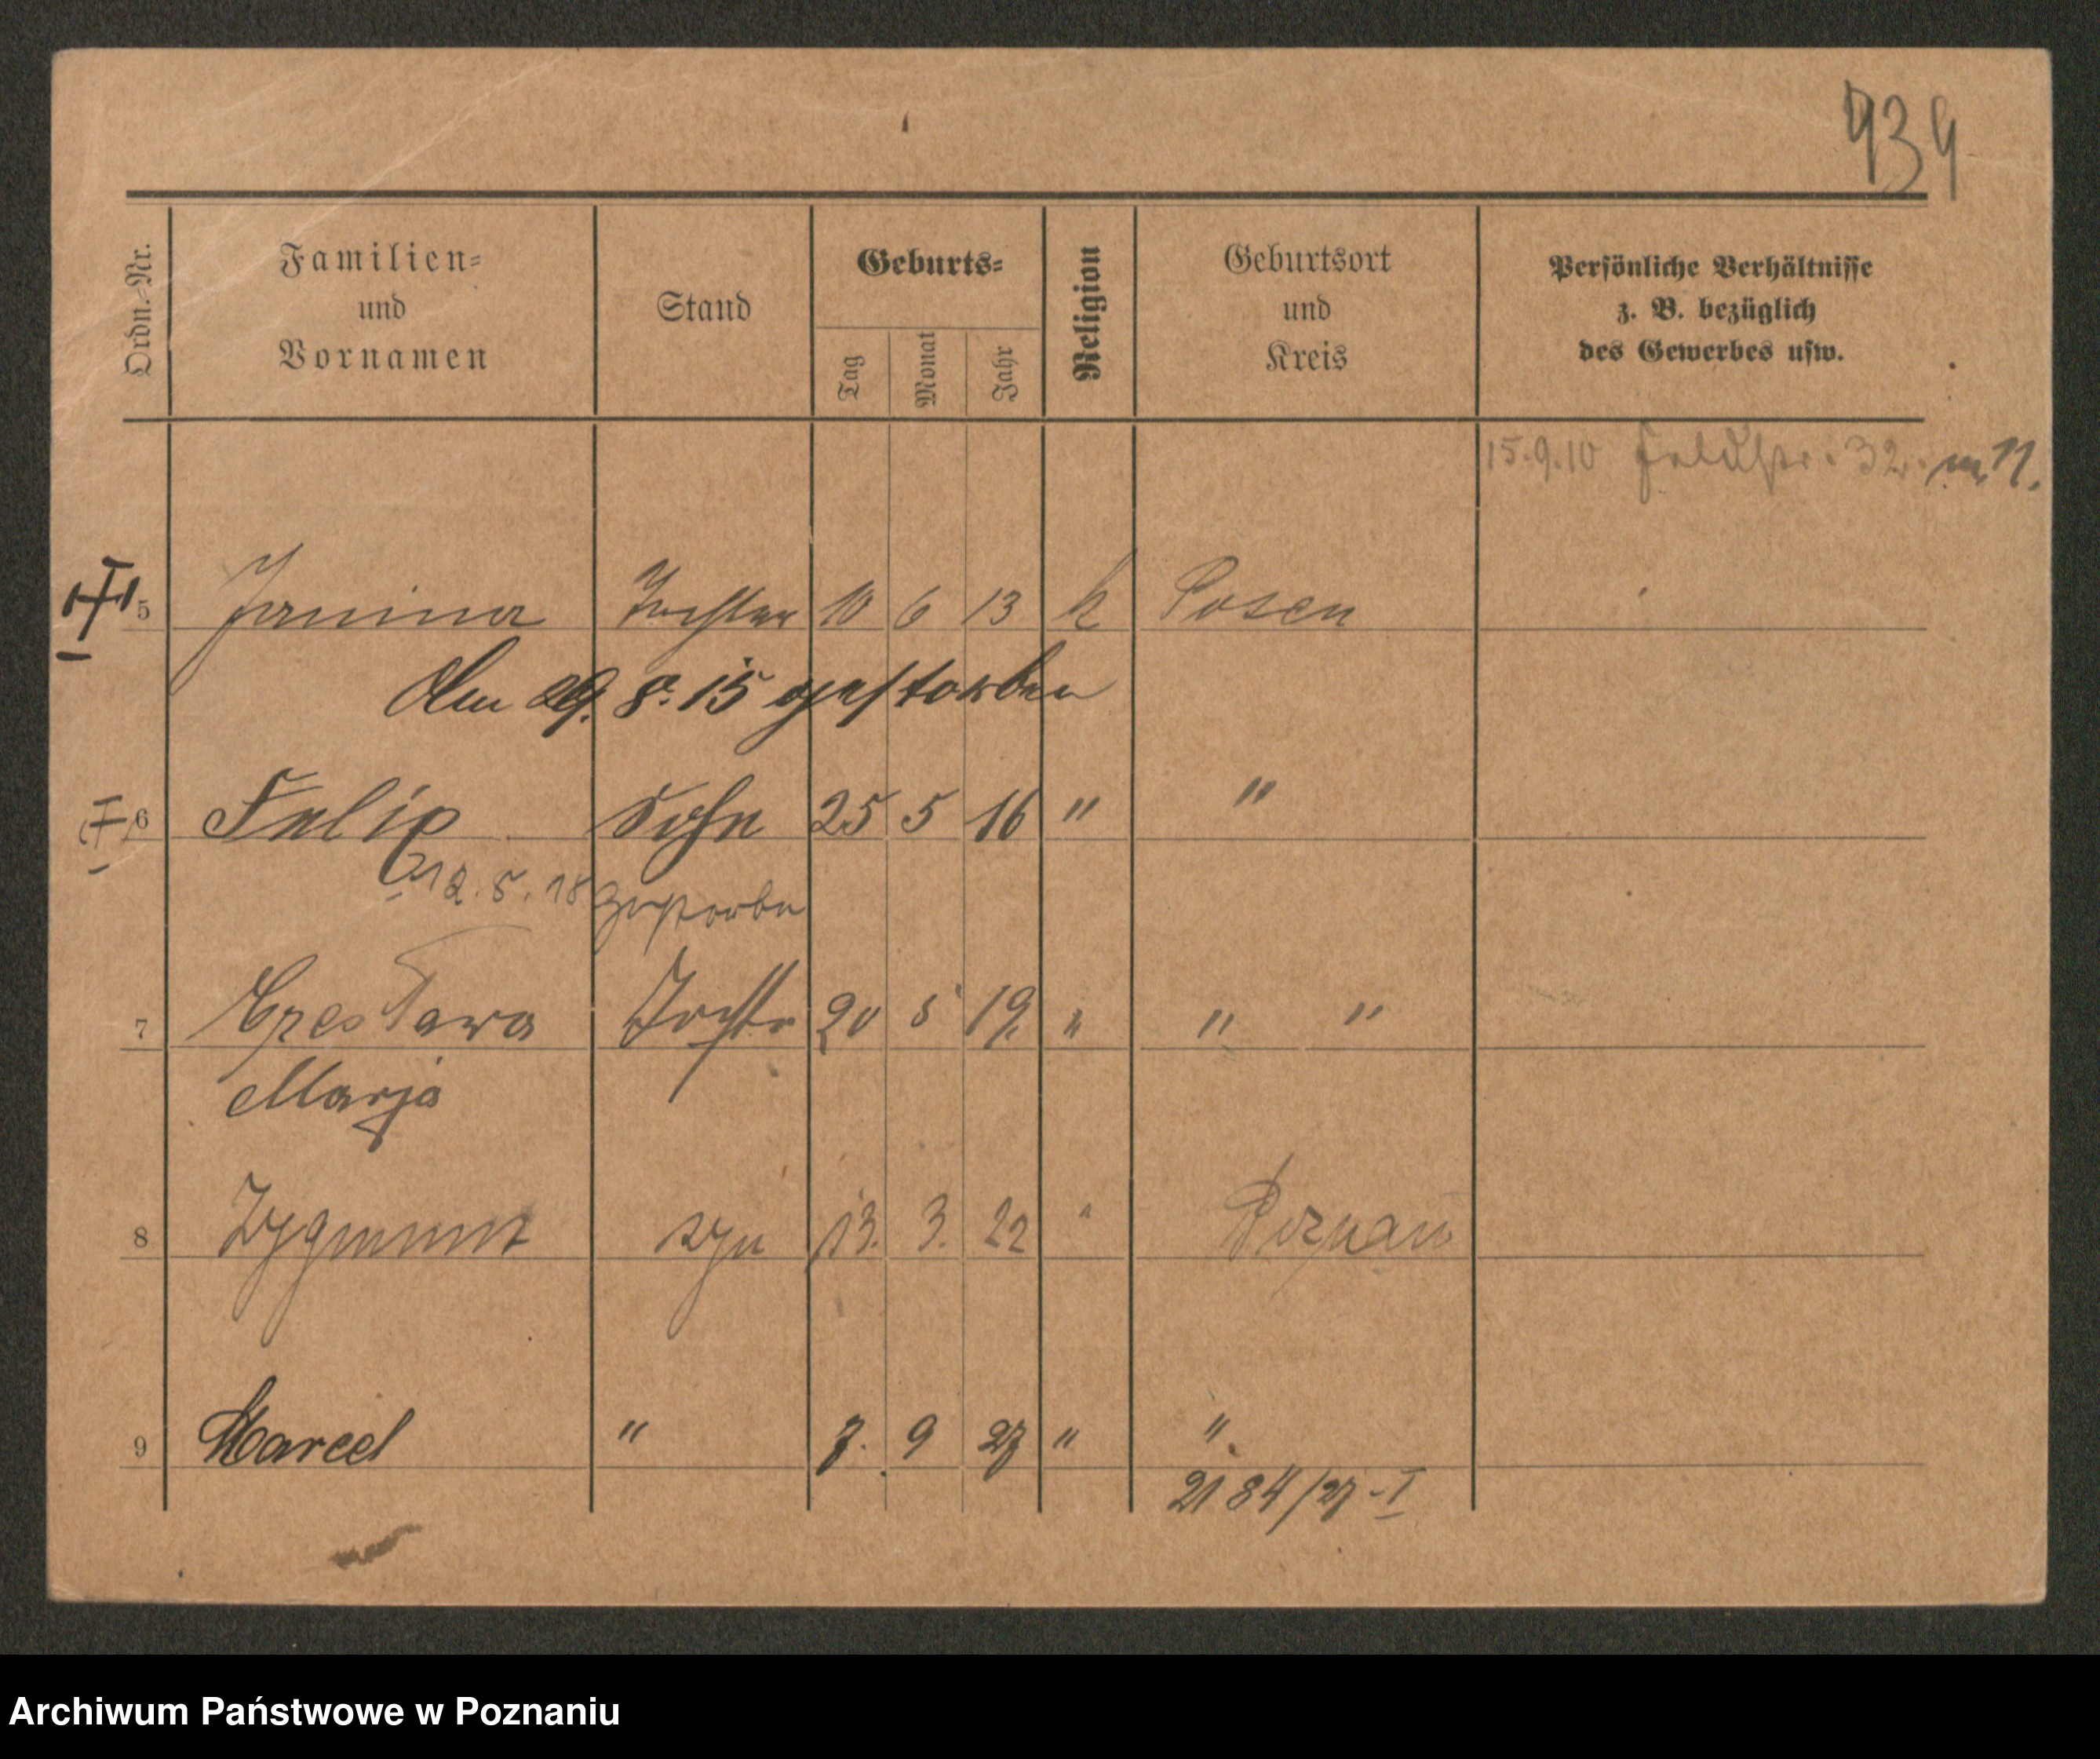 939
Ordn.-Nr.
Familien-
und
Vornamen
Stand
Geburts-
Tag
Monat
Jahr
Religion
Geburtsort
und
Kreis
Persönliche Verhältnisse
z. B. bezüglich
des Gewerbes usw.
15.9.10 Feldstr. 32. m 11.
5 Janina Tochter 10 6 13 k Posen
Am 29. 8. 15 gestorben
6 Felix Sohn 25 5 16 " "
12. 5. 18 gestorben
7 Czesława Tochter 20 5 19 " " "
Marja
8 Zygmunt syn 13. 3. 22 " Poznań
9 Marcel " 7. 9 27 " "
2184/27-I
Archiwum Państwowe w Poznaniu